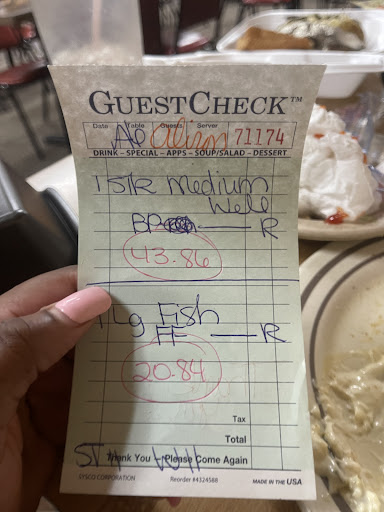 GUESTCHECK™
Date Table Guests Server
A6 Alison 71174
DRINK – SPECIAL – APPS – SOUP/SALAD – DESSERT
1 Stk medium
Well
BP — R
43.86
1 Lg Fish
FF — R
20.84
Tax
Total
Thank You – Please Come Again
SYSCO CORPORATION Reorder #4324588 MADE IN THE USA